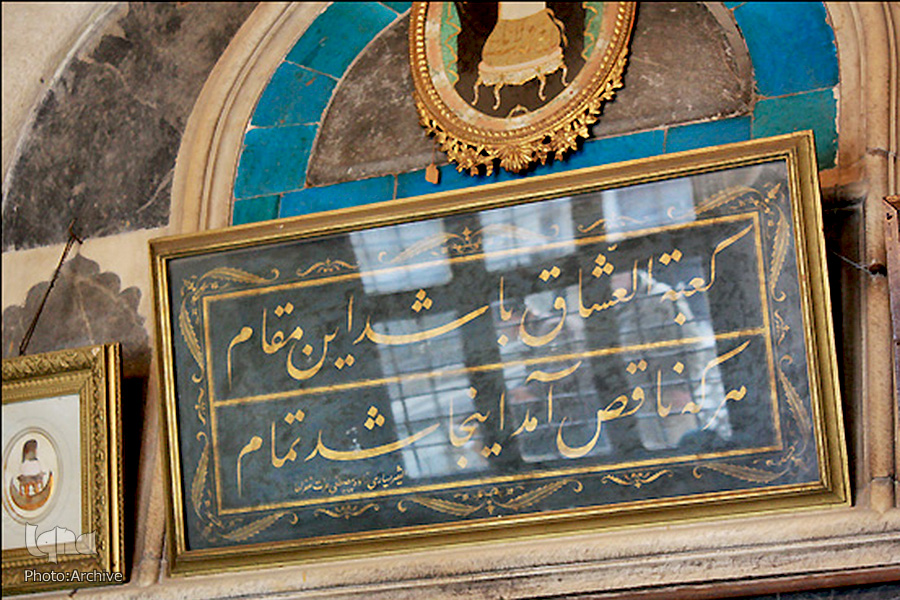 كعبة العشّاق باشد این مقام
هر که ناقص آمد اینجا شد تمام
iqna
Photo:Archive